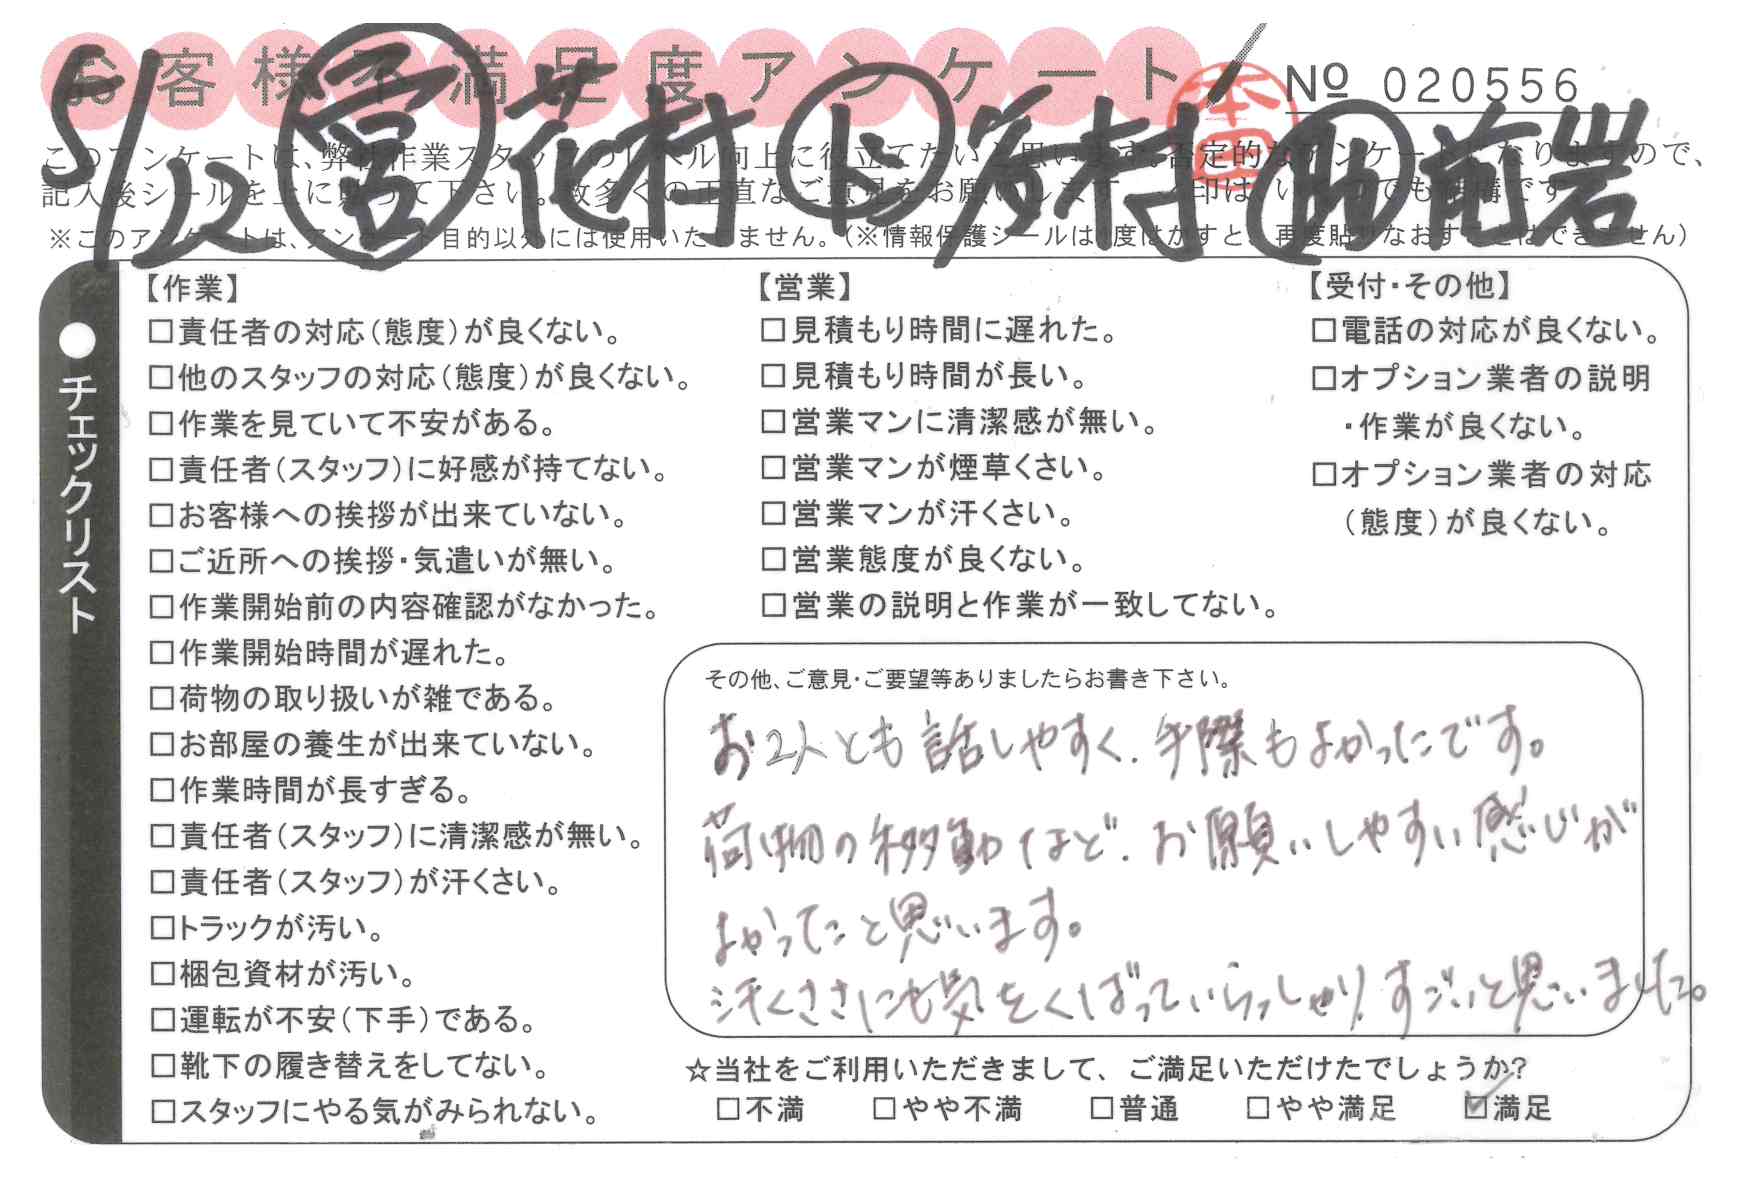 お客様不満足度アンケート
No 020556
5/22 営 花村 ト 谷村 助 前岩
本田
このアンケートは、弊社作業スタッフのレベル向上に役立てたいと思います。否定的なアンケートになりますので、
記入後シールを上に貼って下さい。数多くの正直なご意見をお願いします。
※このアンケートは、アンケート目的以外には使用いたしません。（※情報保護シールは1度はがすと、再度貼りなおすことはできません）
●チェックリスト
【作業】
□責任者の対応（態度）が良くない。
□他のスタッフの対応（態度）が良くない。
□作業を見ていて不安がある。
□責任者（スタッフ）に好感が持てない。
□お客様への挨拶が出来ていない。
□ご近所への挨拶・気遣いが無い。
□作業開始前の内容確認がなかった。
□作業開始時間が遅れた。
□荷物の取り扱いが雑である。
□お部屋の養生が出来ていない。
□作業時間が長すぎる。
□責任者（スタッフ）に清潔感が無い。
□責任者（スタッフ）が汗くさい。
□トラックが汚い。
□梱包資材が汚い。
□運転が不安（下手）である。
□靴下の履き替えをしてない。
□スタッフにやる気がみられない。
【営業】
□見積もり時間に遅れた。
□見積もり時間が長い。
□営業マンに清潔感が無い。
□営業マンが煙草くさい。
□営業マンが汗くさい。
□営業態度が良くない。
□営業の説明と作業が一致してない。
【受付・その他】
□電話の対応が良くない。
□オプション業者の説明
・作業が良くない。
□オプション業者の対応
（態度）が良くない。
その他、ご意見・ご要望等ありましたらお書き下さい。
お2人とも話しやすく、手際もよかったです。
荷物の移動など、お願いしやすい感じが
よかってこと思います。
汗くささにも気をくばっていらっしゃり、すごいと思いました。
☆当社をご利用いただきまして、ご満足いただけたでしょうか?
□不満 □やや不満 □普通 □やや満足 ☑満足